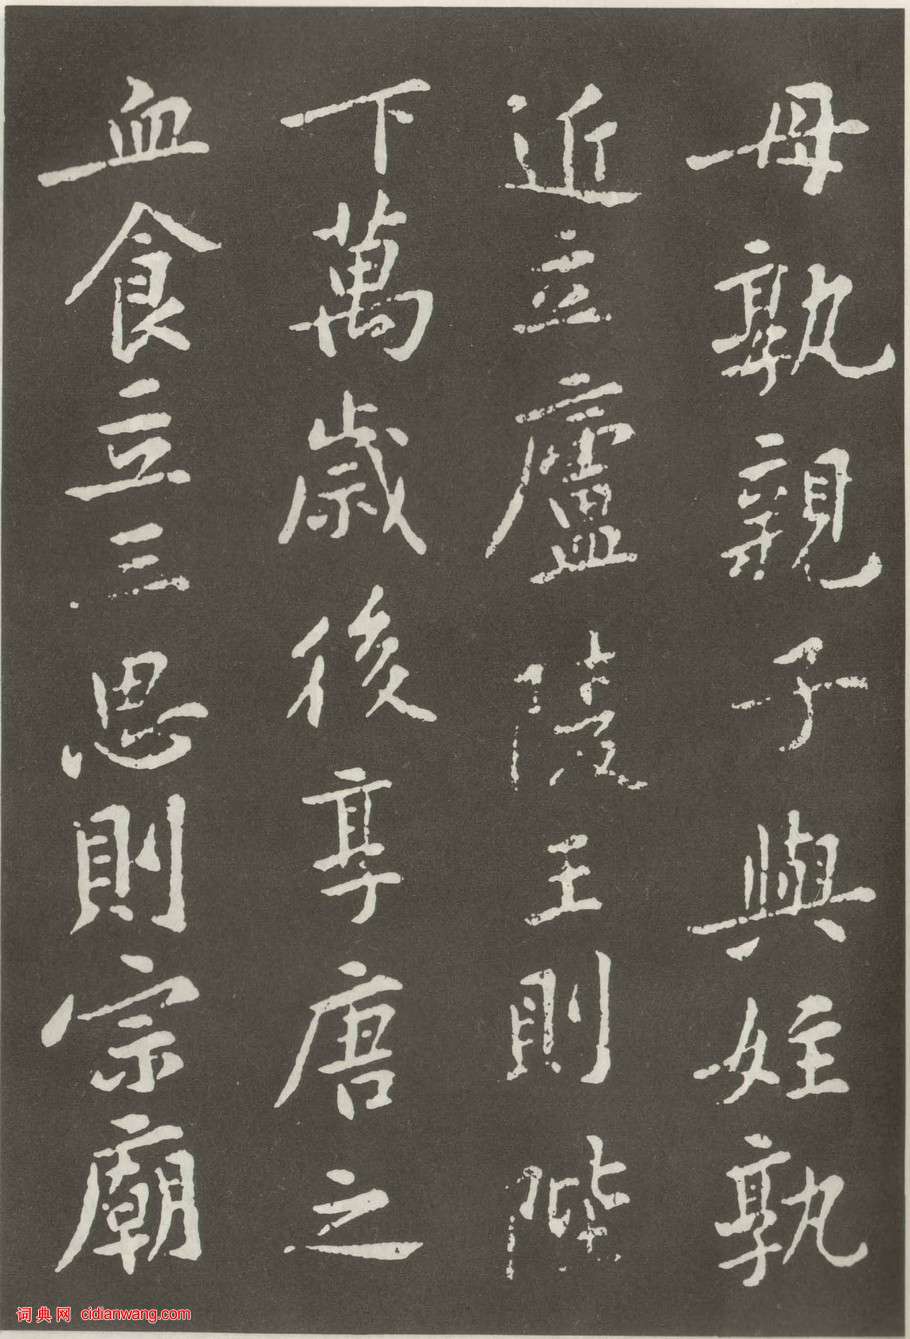 母孰親子與姪孰
近立廬陵王則陛
下萬歲後享唐之
血食立三思則宗廟
词典网 cidianwang.com